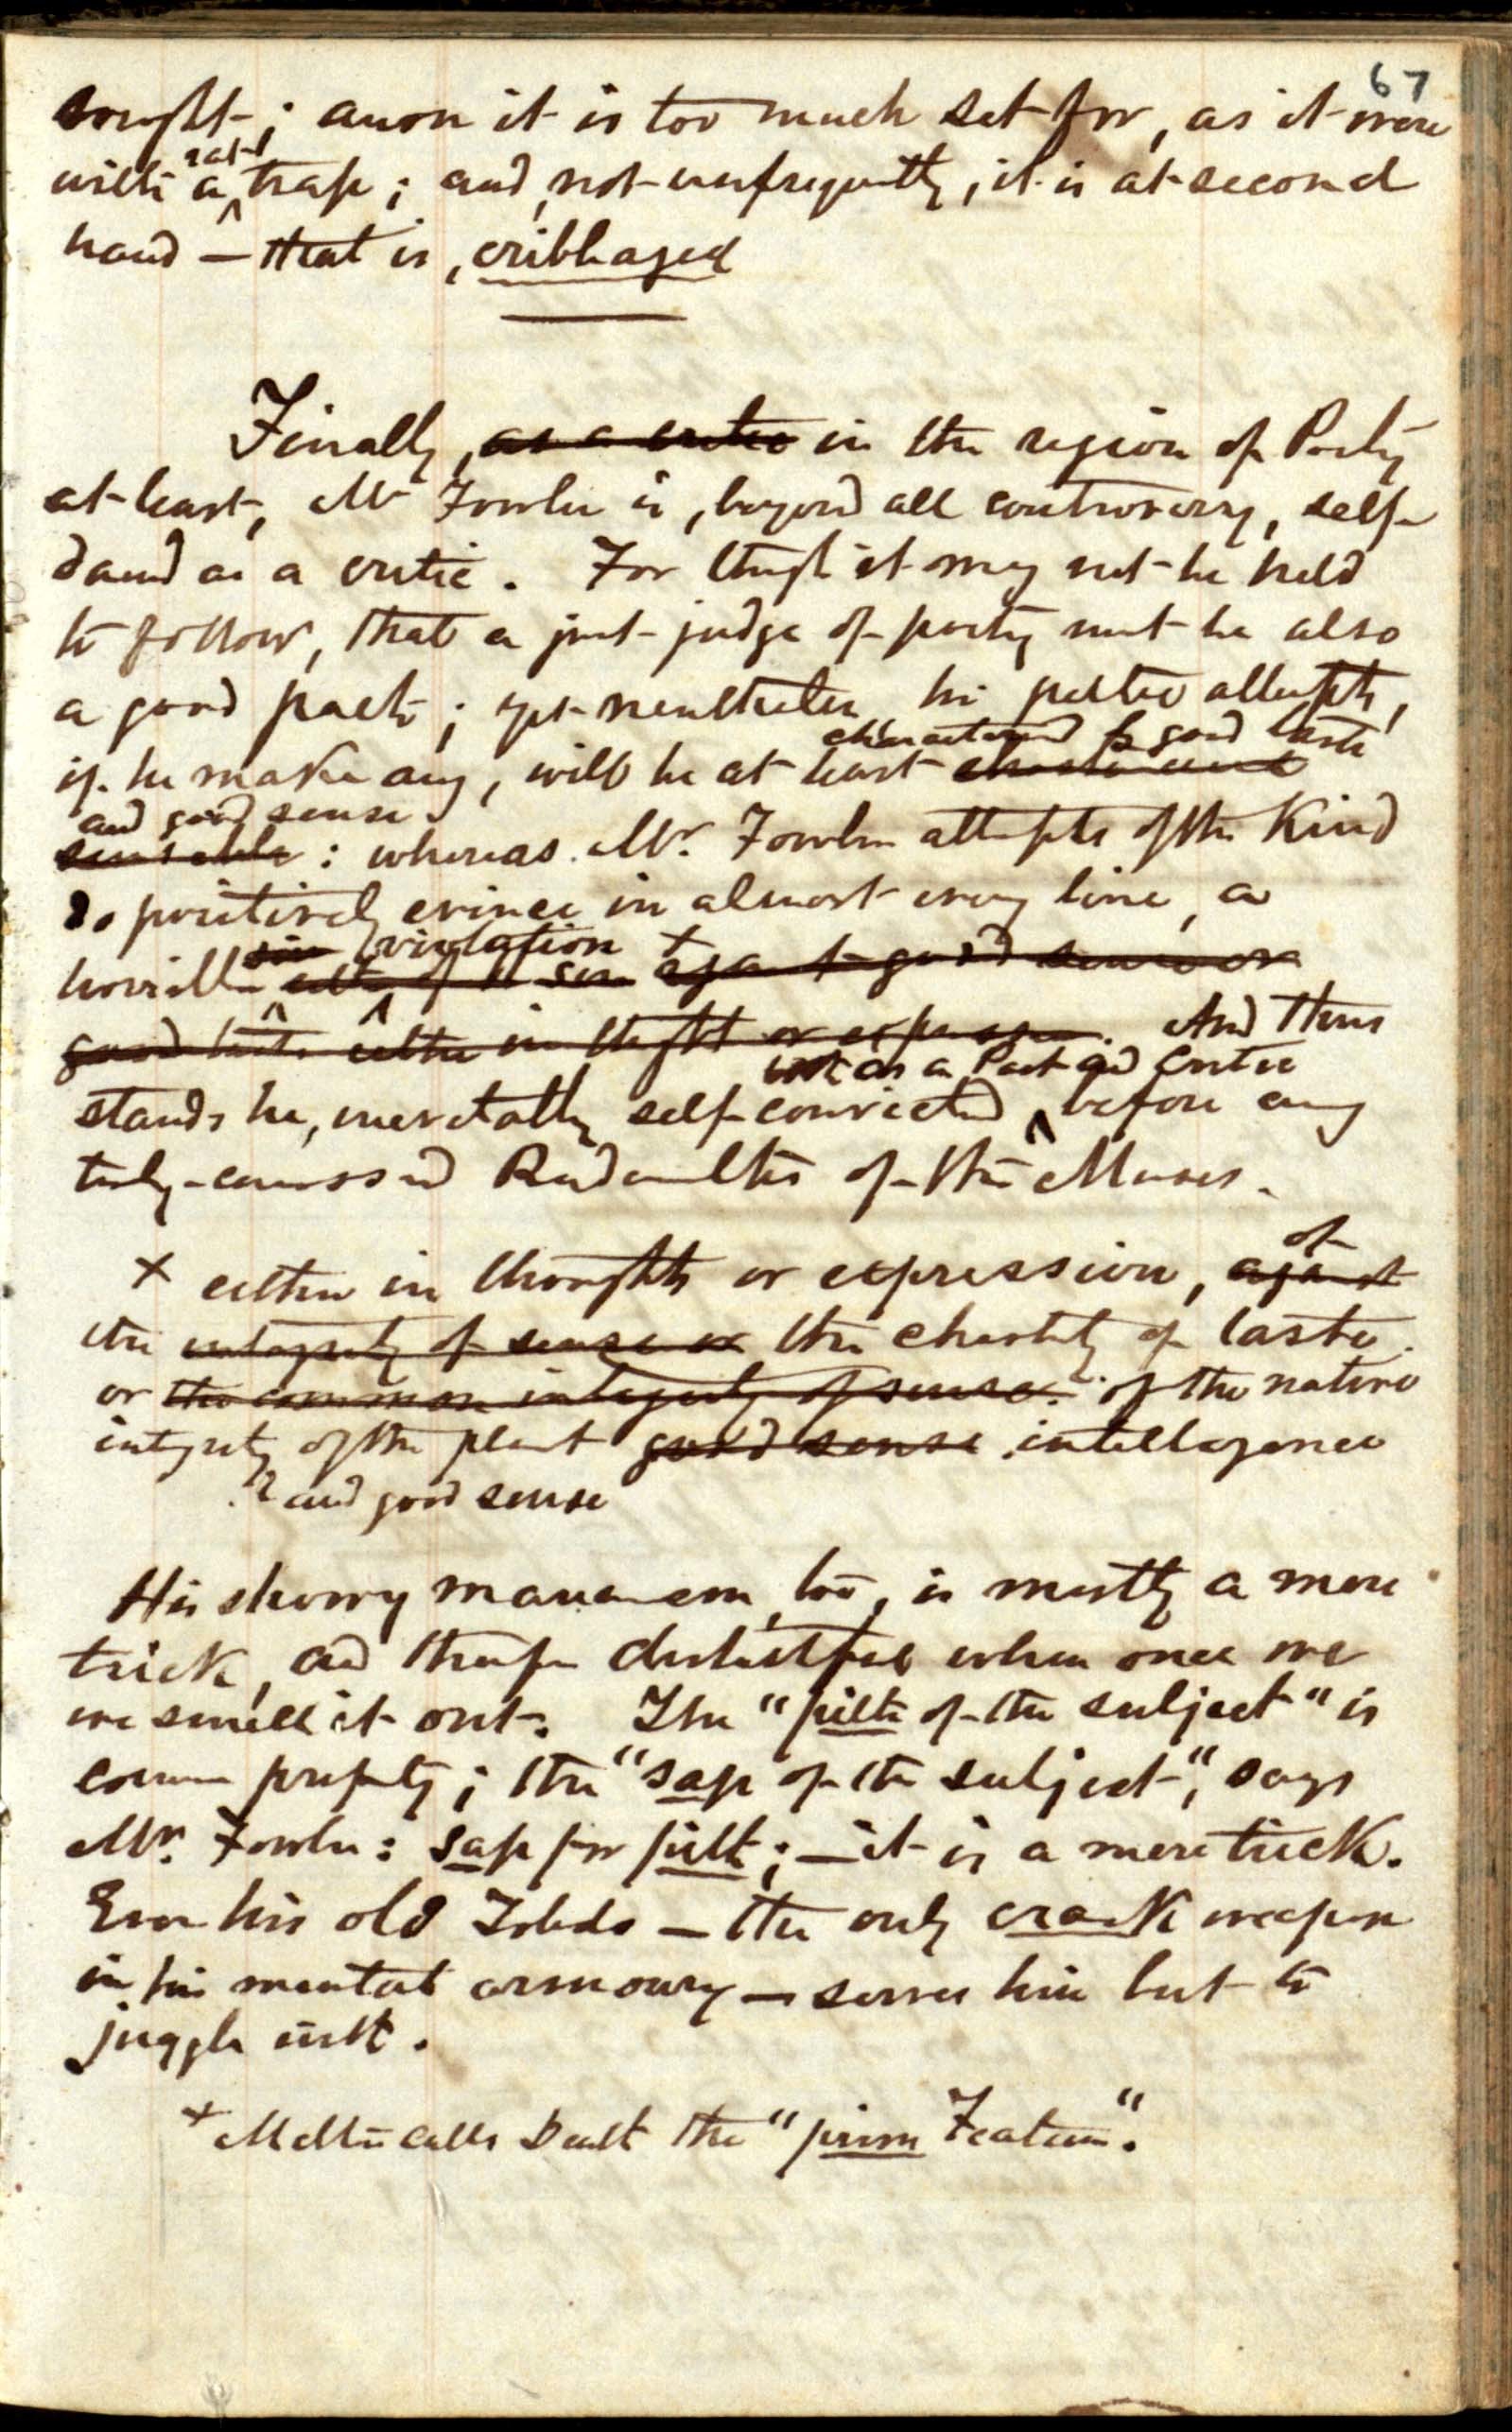 67
sought; anon it is too much set for, as it were
with a rat trap; and, not unfrequently, it is at second
hand — that is, cribbaged
Finally, as a critic in the region of Poetry
at least, Mr Fowler is, beyond all controversy, self-
damd as a critic. For though it may not be held
to follow, that a just judge of poetry must be also
a good poet; yet nevertheless his poetic attempts,
characterized by good taste
if he make any, will be at least
and good sense
sensible : whereas Mr. Fowler attempts of the kind
do positively evince in almost every line, a
sin violation +
horrible sin against good sense or
good taste either in thought or expression. And thus
both as a Poet and Critic
stands he, inevitably self-convicted before any
truly-canonised of the Muses.
+ either in thoughts or expression, of against
the integrity of sense or the chastity of taste
or the common integrity of sense. of the native
integrity of the good sense intelligence
and good sense
His showy mannerism, too, is mostly a mere
trick, and therefore distasteful when once we
we smell it out. The "pith of the subject" is
common property; the "sap of the subject", says
Mr. Fowler: sap for pith; — it is a mere trick.
Even his old Toledo — the only crack weapon
in his mental armoury — serves him but to
juggle with.
+ calls the "prim Feature".